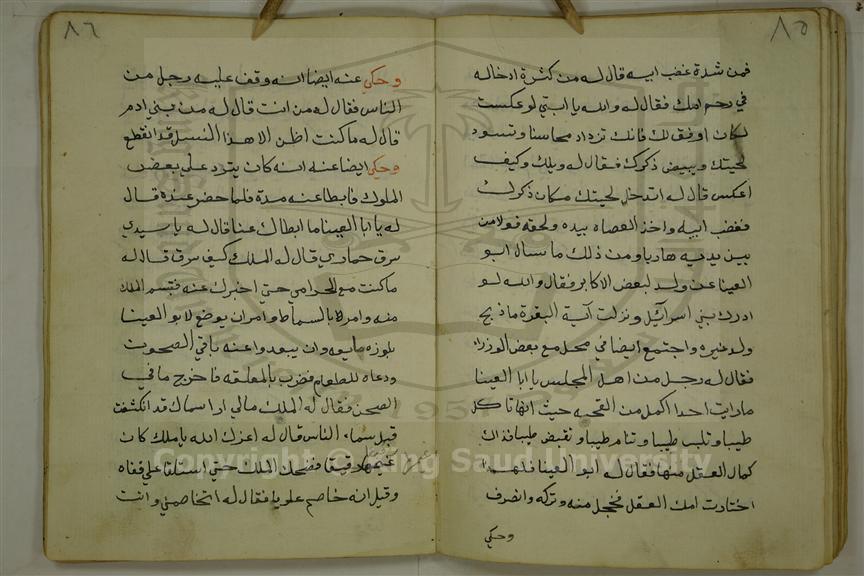 ٨٥
فمن شدة غضب ابيه قال له من كثرة ادخاله
في رحم امك فقال له والله يا ابتي لو عكست
لكان اوفق لك فانك تزداد محاسنا وتسود
لحيتك ويبيض ذكرك فقال له ويلك وكيف
اعكس قال له اتدخل لحيتك مكان ذكرك
فغضب ابيه واخذ العصاه بيده ولحقه فولا من
بين يديه هاربا ومن ذلك ما سال ابو
العينا عن ولد لبعض الاكابر فقال والله لو
ادرك بني اسرآئيل ونزلت آية البقرة ما ذبح
ولد غيره واجتمع ايضا في محل مع بعض الوزراء
فقال له رجل من اهل المجلس يا ابا العينا
ما رايت احدا اكمل من القحبه حيث انها تاكل
طيبا وتلبس طيبا وتنام طيبا وتقبض طيبا فذاك
كمال العقل منها فقال له ابو العينا فلهذا
اختارت امك العقل فخجل منه وتركه وانصرف
وحكي
٨٦
وحكي عنه ايضا انه وقف عليه رجل من
الناس فقال له من انت قال له من بني ادم
قال له ما كنت اظن الا هذا النسل قد انقطع
وحكي ايضا عنه انه كان يتردد علي بعض
الملوك فابطا عنه مدة فلما حضر عنده قال
له يا ابا العينا ما ابطاك عنا قال له يا سيدي
سرق حماري قال له الملك كيف سرق قال له
ما كنت مع الحرامي حتي اخبرك عنه فتبسم الملك
منه وامر له بالسماط وامر ان يوضع لابو العينا
بلوزه مايعه وان يبعدوا عنه باقي الصحون
ودعاه للطعام فضرب بالمعلقه فاخرج ما في
الصحن فقال له الملك مالي ارا سماك قد انكشفت
قبل سماء الناس قال له اعزك الله يا ملك كان
رقيقا فضحك الملك حتي استلقا علي قفاه
وقيل انه خاصم علويا فقال له اتخاصمني وانت
Copyright © King Saud University
1957